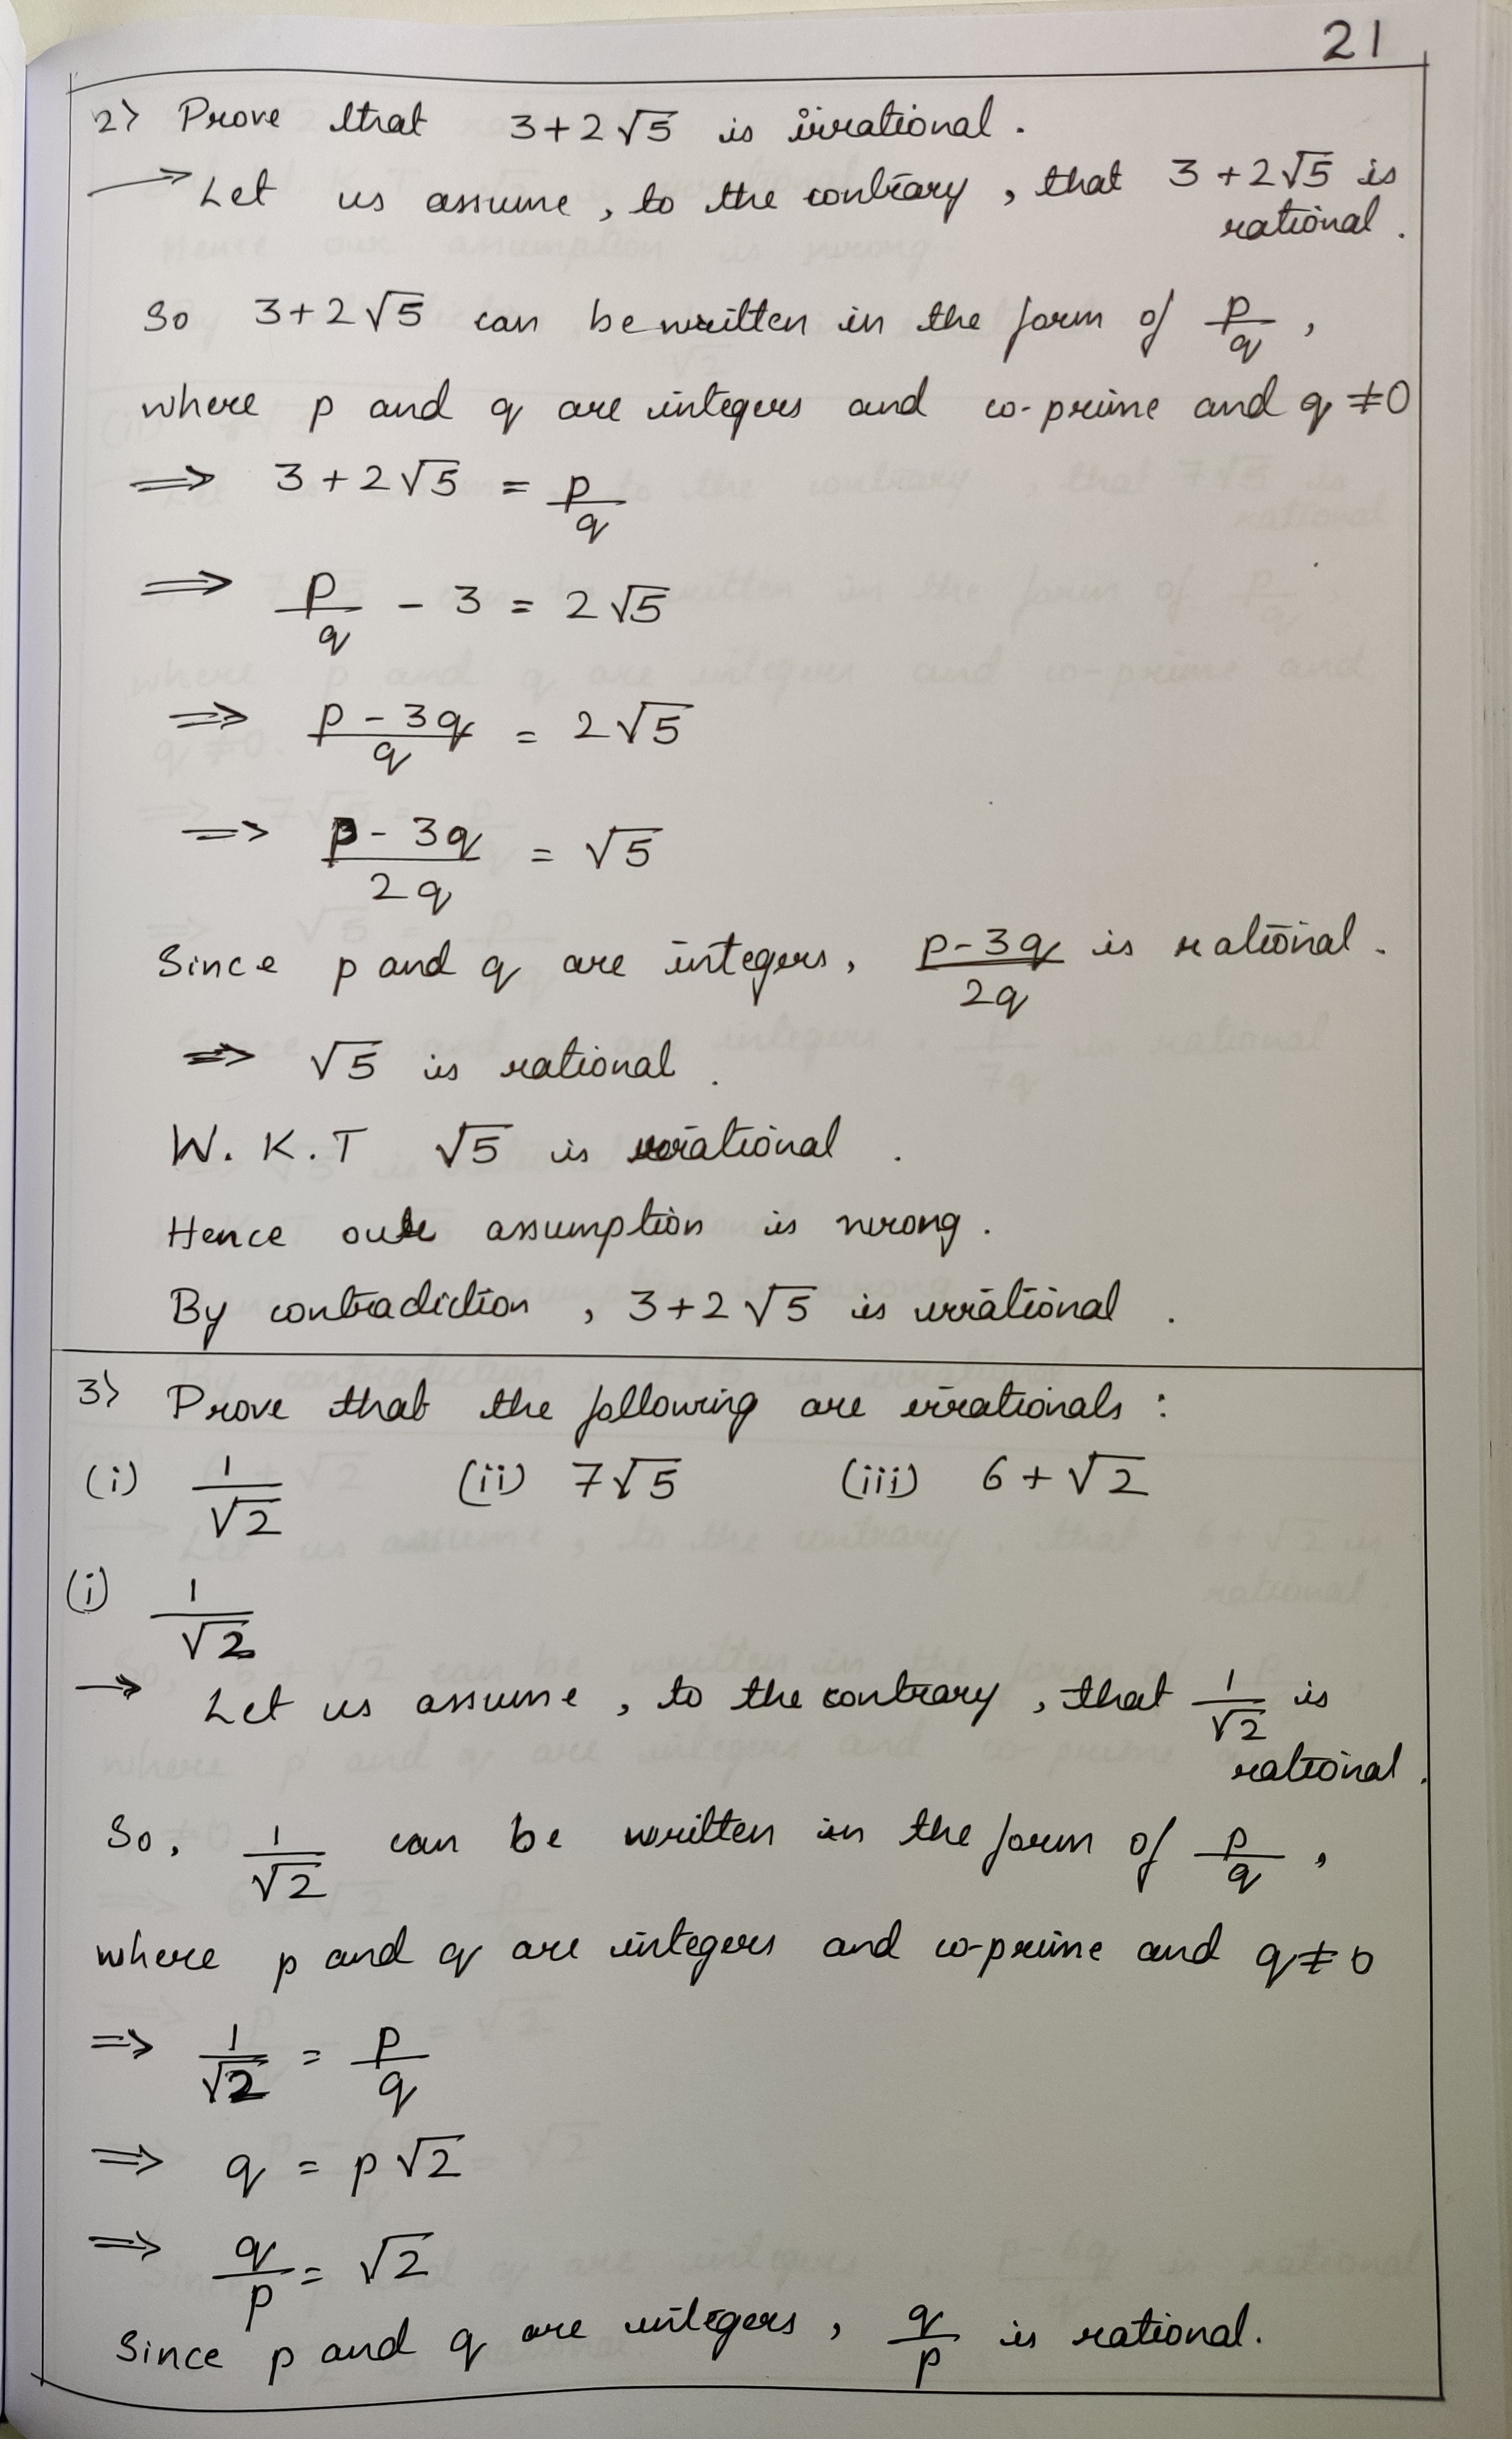 21
2) Prove that 3+2√5 is irrational.
→ Let us assume, to the contrary, that 3+2√5 is
rational.
So 3+2√5 can be written in the form of p/q,
where p and q are integers and co-prime and q ≠ 0
⇒ 3+2√5 = p/q
⇒ p/q - 3 = 2√5
⇒ (p-3q)/q = 2√5
=> (p-3q)/2q = √5
Since p and q are integers, (p-3q)/2q is rational.
⇒ √5 is rational.
W.K.T √5 is irrational.
Hence our assumption is wrong.
By contradiction, 3+2√5 is irrational.
3) Prove that the following are irrationals:
(i) 1/√2 (ii) 7√5 (iii) 6+√2
(i) 1/√2
→ Let us assume, to the contrary, that 1/√2 is
rational.
So, 1/√2 can be written in the form of p/q,
where p and q are integers and co-prime and q ≠ 0
⇒ 1/√2 = p/q
⇒ q = p√2
⇒ q/p = √2
Since p and q are integers, q/p is rational.